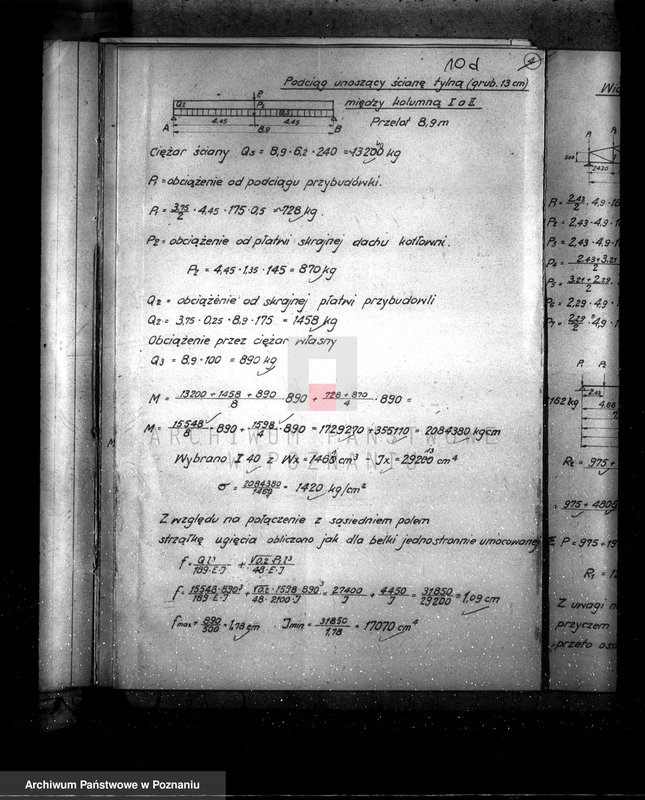 10d
4
Podciąg unoszący ścianę tylną (grub. 13 cm)
między kolumną I a II
Przelot 8,9m
P
Q2 P2
4.45 4.45
A 8.9 B
Ciężar ściany Q3 = 8,9 · 6,2 · 240 = ~13200 kg
P1 = obciążenie od podciągu przybudówki.
P1 = 3,75/2 · 4,45 · 175 · 0,5 = ~728 kg.
P2 = obciążenie od płatwi skrajnej dachu kotłowni.
P2 = 4,45 · 1,35 · 145 = 870 kg
Q2 = obciążenie od skrajnej płatwi przybudówli
Q2 = 3,75 · 0,25 · 8,9 · 175 = 1458 kg
Obciążenie przez ciężar własny
Q3 = 8,9 · 100 = 890 kg
M = 13200 + 1458 + 890/8 · 890 + 728 + 870/4 · 890 =
M = 15548/8 · 890 + 1598/4 · 890 = 1729270 + 355110 = 2084380 kgcm
Wybrano I 40 z Wx = 1460 cm³ - Jx = 29200 cm⁴
σ = 2084380/1460 = 1420 kg/cm²
Z względu na połączenie z sąsiedniem polem
strzałkę ugięcia obliczono jak dla belki jednostronnie umocowanej
f = Q l³/189·E·J + √0.2·P·l³/48·E·J
f = 15548 · 890³/189·E·J + √0.2 · 1598 · 890³/48 · 2100·J = 27400/J + 4450/J = 31850/29200 = 1,09 cm
fmax = 890/500 = 1,78 cm Jmin = 31850/1,78 = 17070 cm⁴
500
2430
P1 = 2,43/2 · 4,9 ·
P2 = 2,43 · 4,9 · 1
P3 = 2,43 · 4,9 · 1
P4 = 2,43+3,21/2
P5 = 3,21+2,29/2
P6 = 2,29 · 4,9 ·
P7 = 2,29/2 · 4,9 · 1
P1 P2
2.43
162 kg 4.86
R2 = 975 +
975 + 4806
Σ P = 975 + 19
R1 = 1
Z uwagi n
przyczem
przeto oso
ARCHIWUM PAŃSTWOWE
W POZNANIU
Archiwum Państwowe w Poznaniu